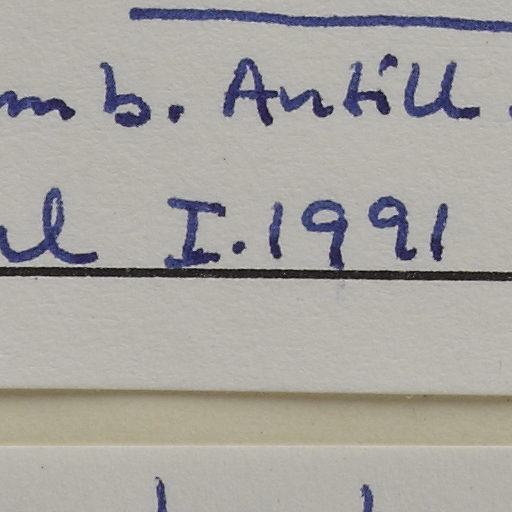 mb. Antill.
l I.1991